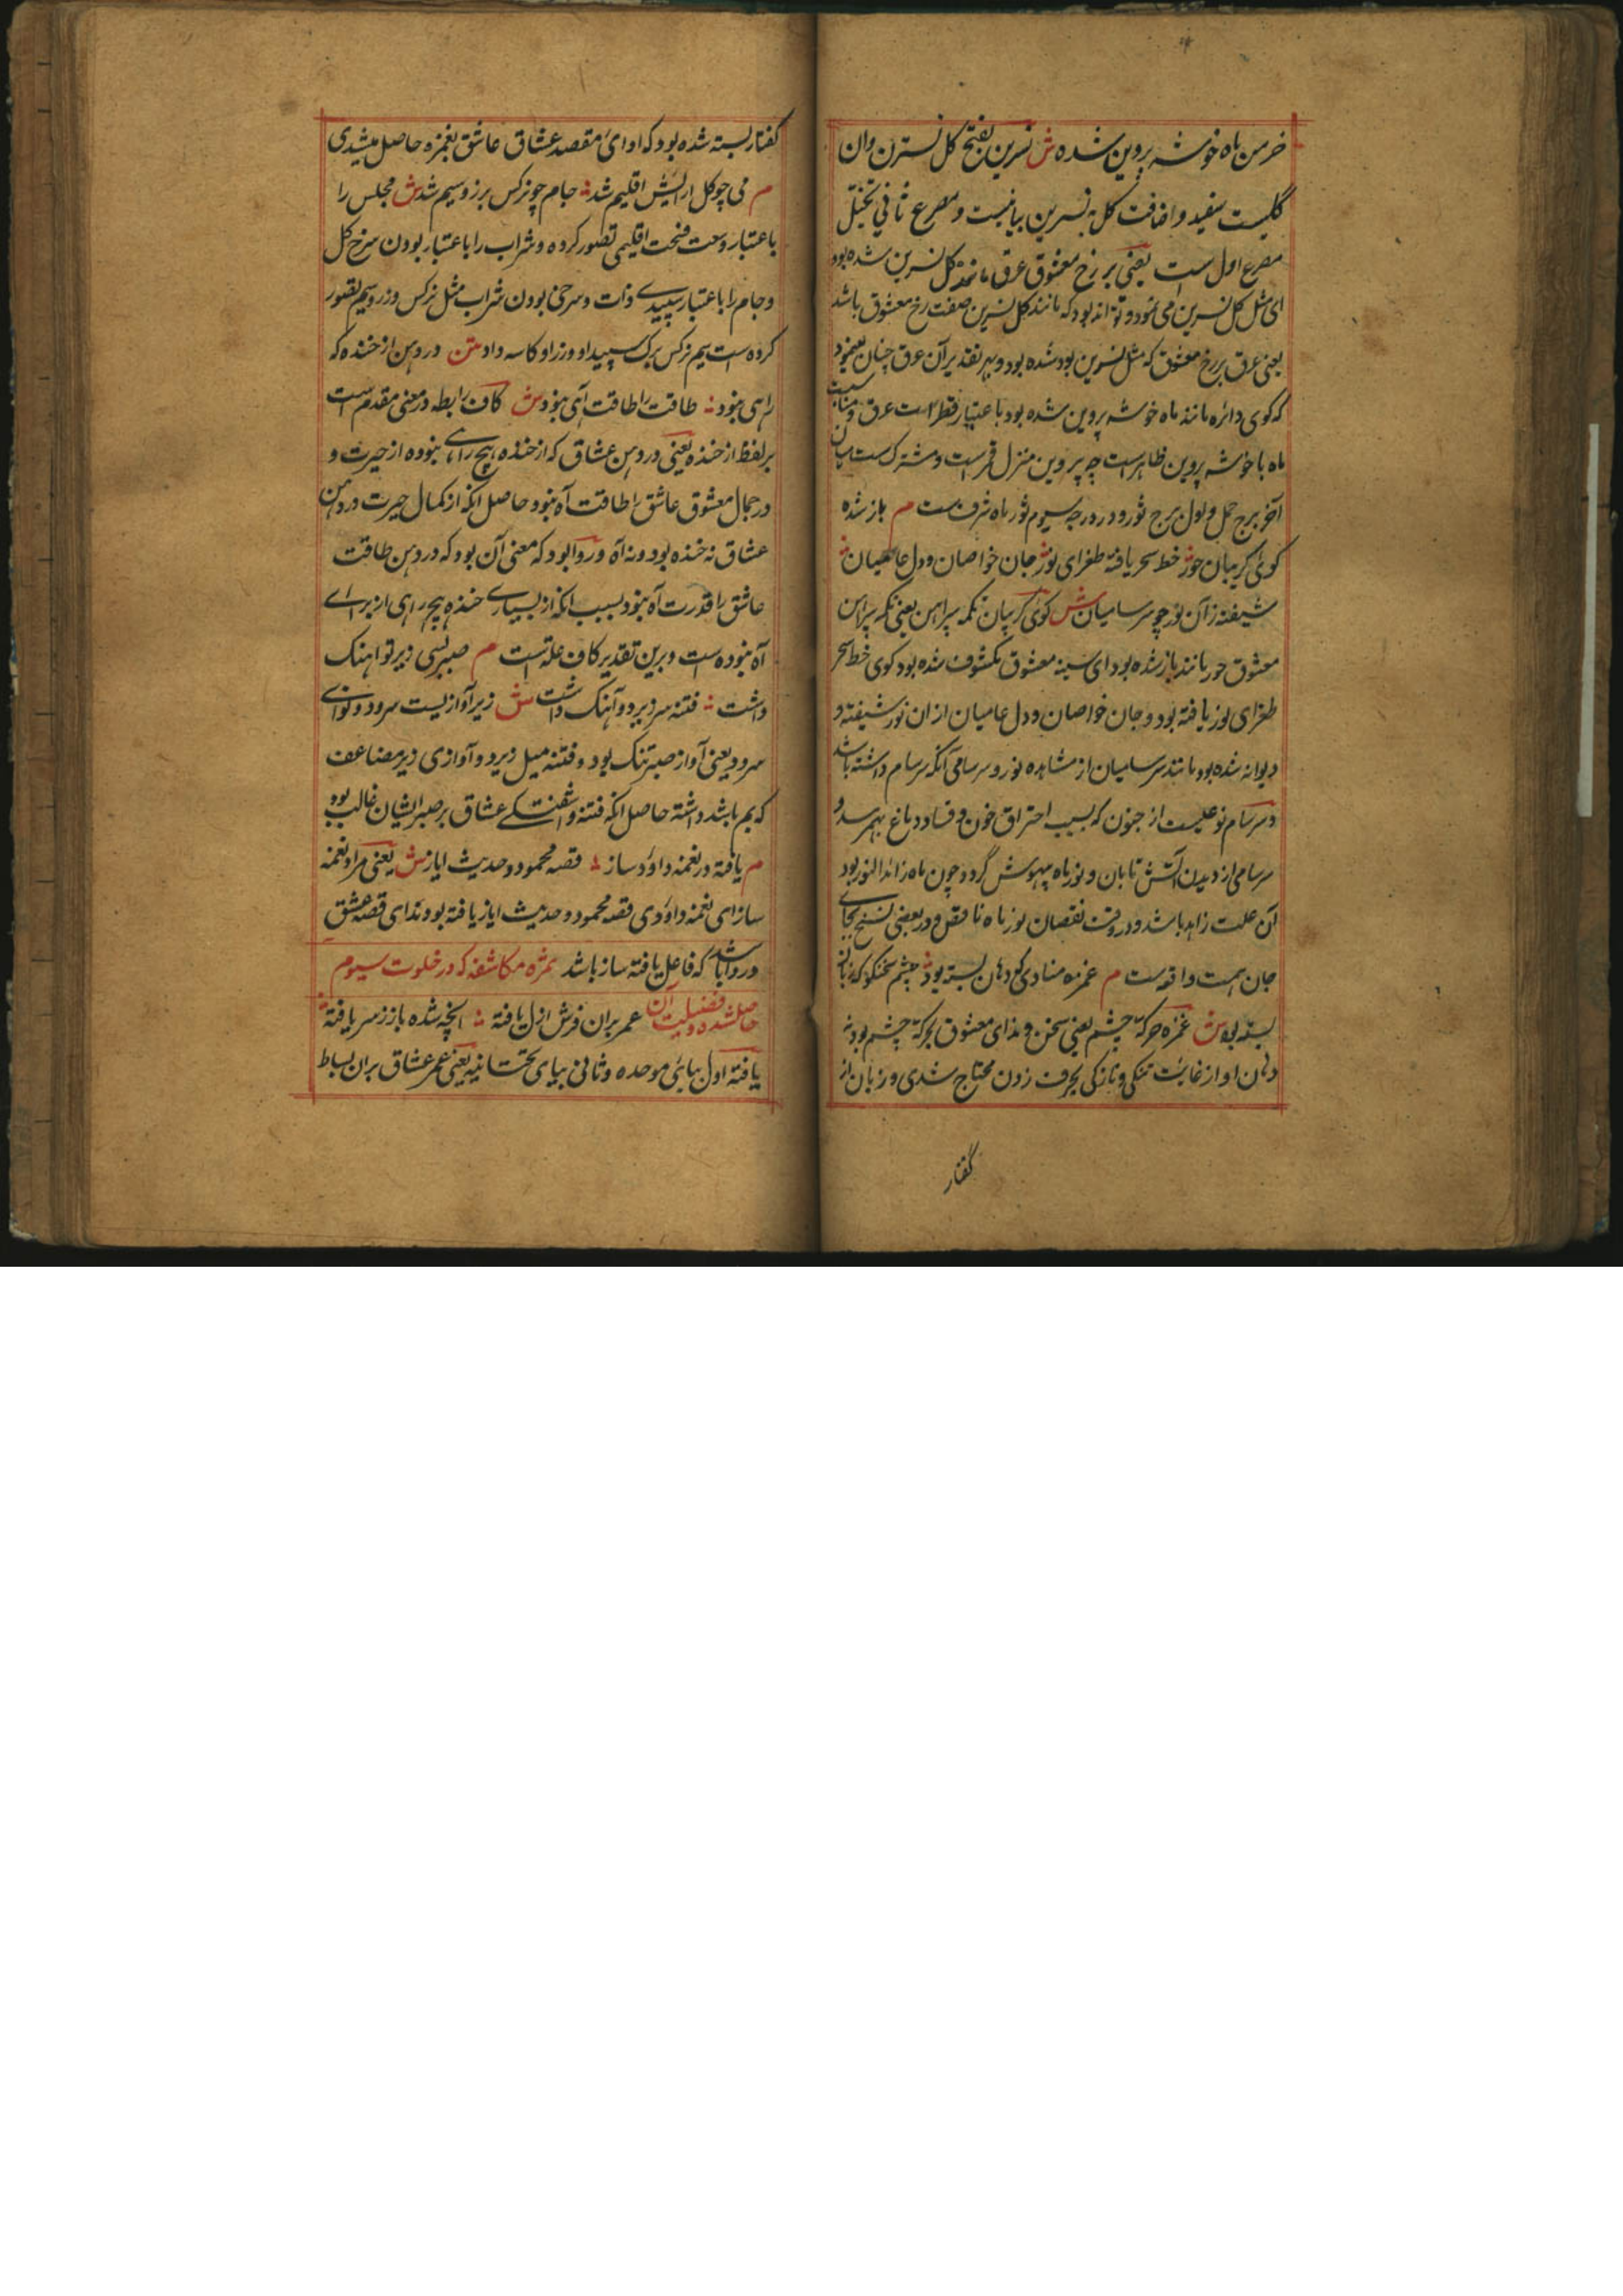 خرمن ماه خوشه پروین شده ش نسرین بفتح گل نسترن وان
گلیست سفید و اضافت گل به نسرین بیانیست و مصرع ثانی تخیل
مصرع اول ست یعنی بر رخ معشوق عرق مانند گل نسرین شده بود
ای مثل گل نسرین می نمود و تواند بود که مانند گل نسرین صفت رخ معشوق باشد
یعنی عرق بر رخ معشوق که مثل نسرین بود شده بود و بهر تقدیر آن عرق چنان مینمود
که گوی دائره مانند ماه خوشه پروین شده بود باعتبار قطرات عرق و مناسبت
ماه با خوشه پروین ظاهرست چه پروین منزل قمرست و مشترکست میان
آخر برج حمل و اول برج ثور و در درجه سیوم ثور ماه شرف ست م باز شده
گوی گریبان حور خط سحر یافته طغرای نور جان خواصان و دل عامیان
شیفته زان نور چو سرسامیان ش گوی گریبان تکمه پیراهن یعنی تکمه پیراهن
معشوق حور مانند باز شده بود ای سینه معشوق مکشوف شده بود گوی خط سحر
طغرای نور یافته بود و جان خواصان و دل عامیان از ان نور شیفته و
دیوانه شده بود مانند سرسامیان از مشاهده نور و سرسامی آنکه سرسام داشته باشد
و سرسام نوعیست از جنون که بسبب احتراق خون و فساد دماغ بهمرسد و
سرسامی از دیدن آتش تابان و نور ماه بیهوش گردد چون ماه زائد النور بود
آن علت زاید باشد و در وقت نقصان نور ماه ناقص و در بعضی نسخ بجای
جان همت واقعست م غمزه منادی که دهان بسته بود چشم سخنگو که زبان
بسته بود ش غمزه حرکت چشم یعنی سخن و ندای معشوق بحرکت چشم بود نه
دهان او از غایت تنگی و نازکی بحرف زدن محتاج شدی و زبان از
گفتار
گفتار بسته شده بود که او ای مقصد عشاق عاشق بغمزه حاصل میشدی
م می چو گل آرایش اقلیم شد جام چو نرگس بر زر و سیم شد ش مجلس را
باعتبار وسعت فسحت اقلیمی تصور کرده و شراب را باعتبار بودن سرخ گل
و جام را باعتبار سپیدی ذات و سرخی بودن شراب مثل نرگس و زر و سیم تصور
کرده است سیم نرگس برگ سپید او و زر او کاسه داد متن در دهن از خنده که
راهی نبود طاقت را طاقت آهی نبود ش کاف رابطه در معنی مقدم ست
بر لفظ از خنده یعنی در دهن عشاق که از خنده هیچ راهی نبوده از حیرت و
در جمال معشوق عاشق را طاقت آه نبود حاصل انکه از کمال حیرت در دهن
عشاق نه خنده بود و نه آه و روا بود که معنی آن بود که در دهن طاقت
عاشق را قدرت آه نبود بسبب انکه از بسیاری خنده هیچ راهی از برای
آه نبوده است و برین تقدیر کاف علت است م صبر بسی زیر تو آهنگ
داشت فتنه سر زیر و آهنگ داشت ش زیر آوازیست سرود و نوای
سرود یعنی آواز صبر تنک بود و فتنه میل زیر و آوازی زیر مضاعف
که بم باشد داشته حاصل انکه فتنه و آشفتگی عشاق بر صبر ایشان غالب بود
م یافته در نغمه داود ساز قصه محمود و حدیث ایاز ش یعنی مراد نغمه
ساز ای نغمه داودی قصه محمود و حدیث ایاز یافته بودند ای قصه عشق
و روا باشد که فاعل یافته ساز باشد ثمره مکاشفه که در خلوت سیوم
حاصلشده و فضیلت آن عمر بران فرش ازل یافته آنچه شده باز ز سر یافته
یافته اول ببای موحده و ثانی بیای تحتانیه یعنی عمر عشاق بران بساط